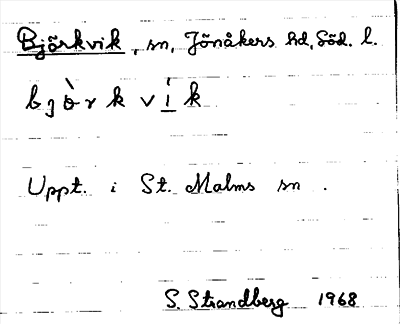 Björkvik, sn, Jönåkers hd, Söd. l.
bjò̈rkví̲k
Uppt. i St. Malms sn.
S. Strandberg 1968